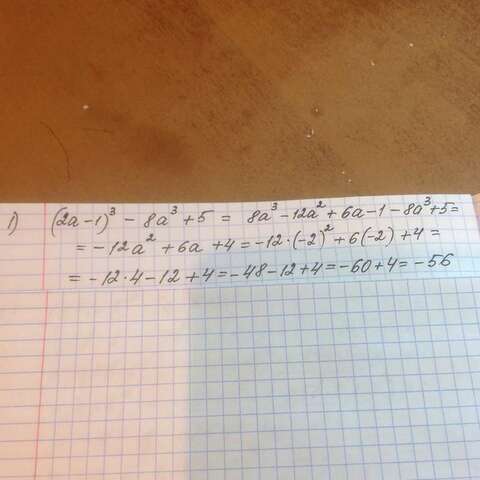 1) (2a-1)³ - 8a³ + 5 = 8a³ - 12a² + 6a - 1 - 8a³ + 5 =
= - 12a² + 6a + 4 = -12·(-2)² + 6(-2) + 4 =
= - 12·4 - 12 + 4 = -48 - 12 + 4 = -60 + 4 = -56